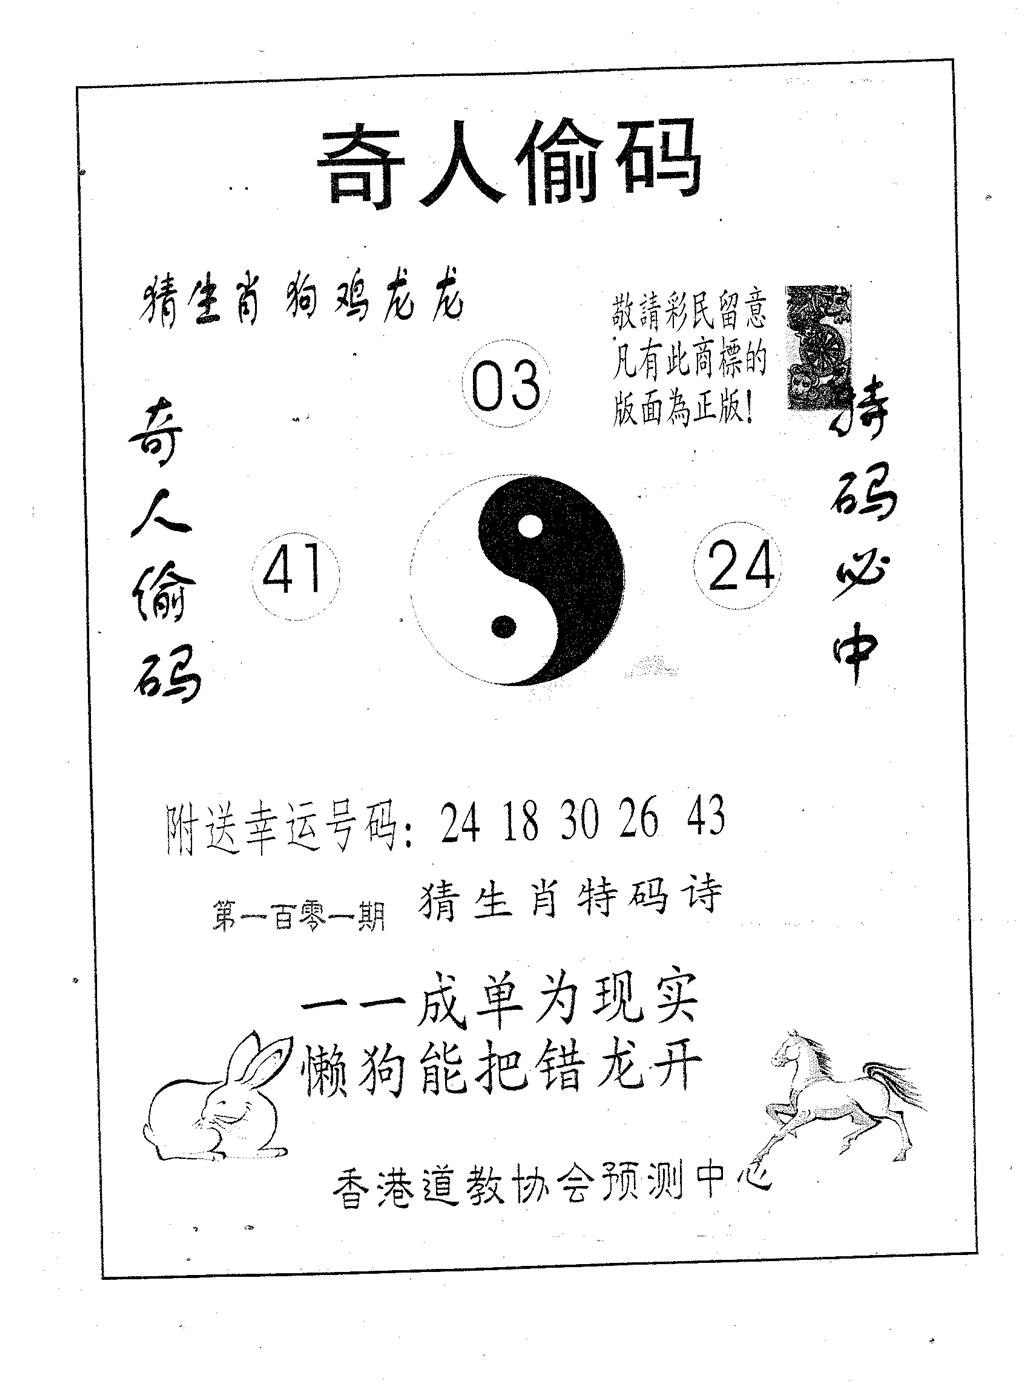 奇人偷码
猜生肖狗鸡龙龙
敬請彩民留意
凡有此商標的
版面為正版!
03
奇人偷码
特码必中
41
24
附送幸运号码: 24 18 30 26 43
第一百零一期 猜生肖特码诗
一一成单为现实
懒狗能把错龙开
香港道教协会预测中心